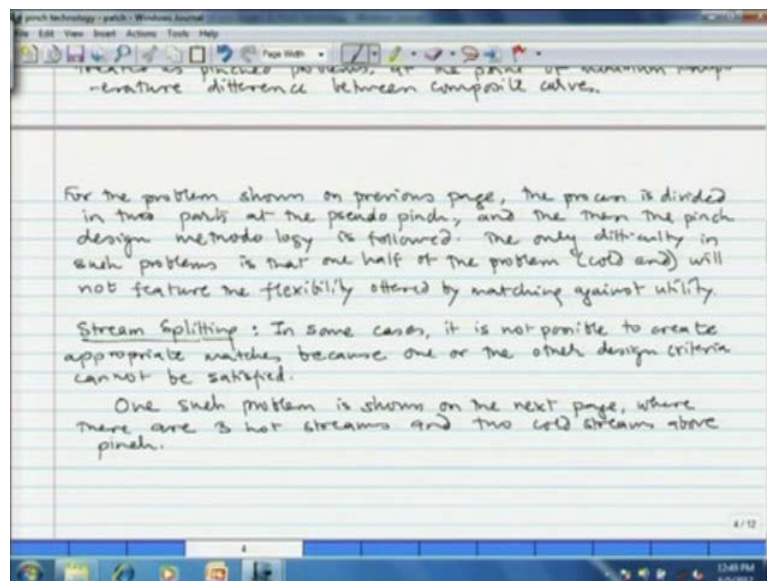 pinch technology - patch - Windows Journal
File Edit View Insert Actions Tools Help
Page Width
treated as pinched problems, at the point of minimum temp
-erature difference between composite calves.
For the problem shown on previous page, the process is divided
in two parts at the pseudo pinch, and the then the pinch
design methodology is followed. The only difficulty in
such problems is that one half of the problem (cold end) will
not feature the flexibility offered by matching against utility.
Stream Splitting : In some cases, it is not possible to create
appropriate matches because one or the other design criteria
cannot be satisfied.
One such problem is shown on the next page, where
there are 3 hot streams and two cold streams above
pinch.
4/12
4
12:49 PM